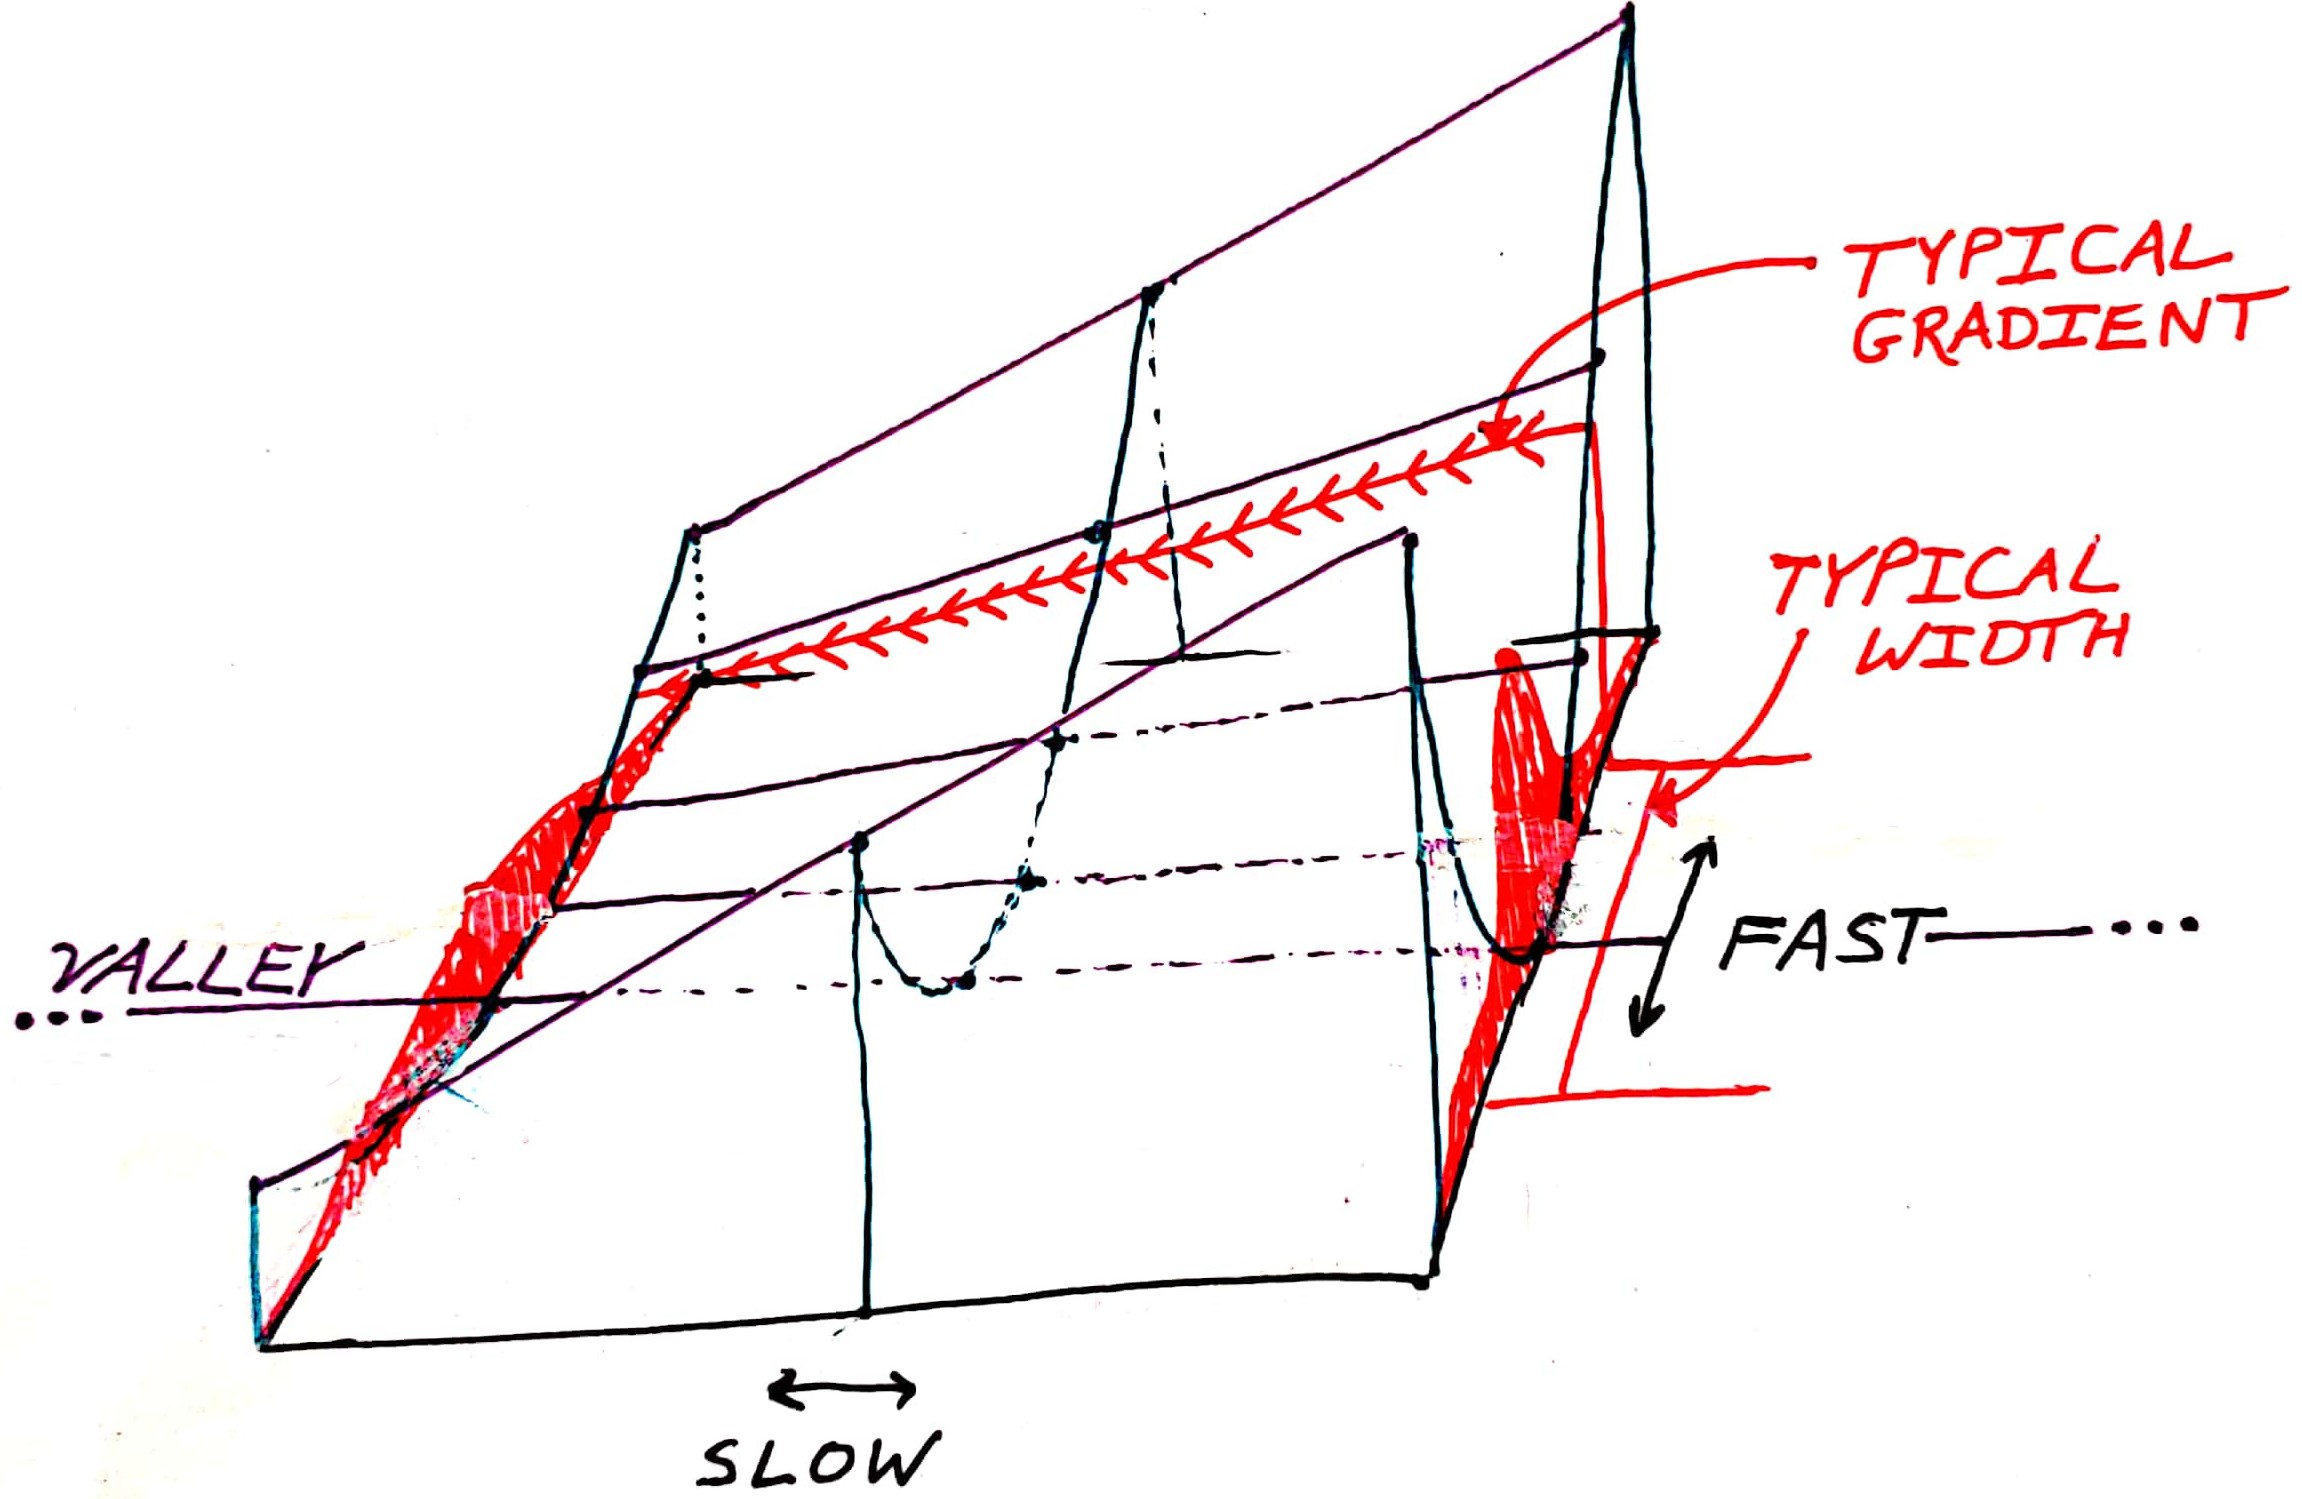 TYPICAL
GRADIENT
TYPICAL
WIDTH
VALLEY
FAST
SLOW